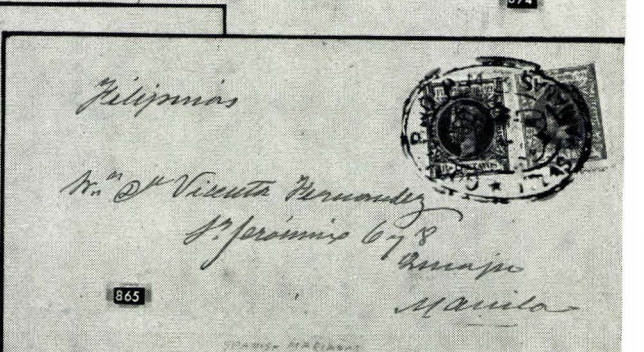 874
Filipinas
ISLAS MARIANAS
Vicenta Fernandez
Sn. Jerónimo 6 y 8
Quiapo
Manila
865
SPANISH MARIANAS